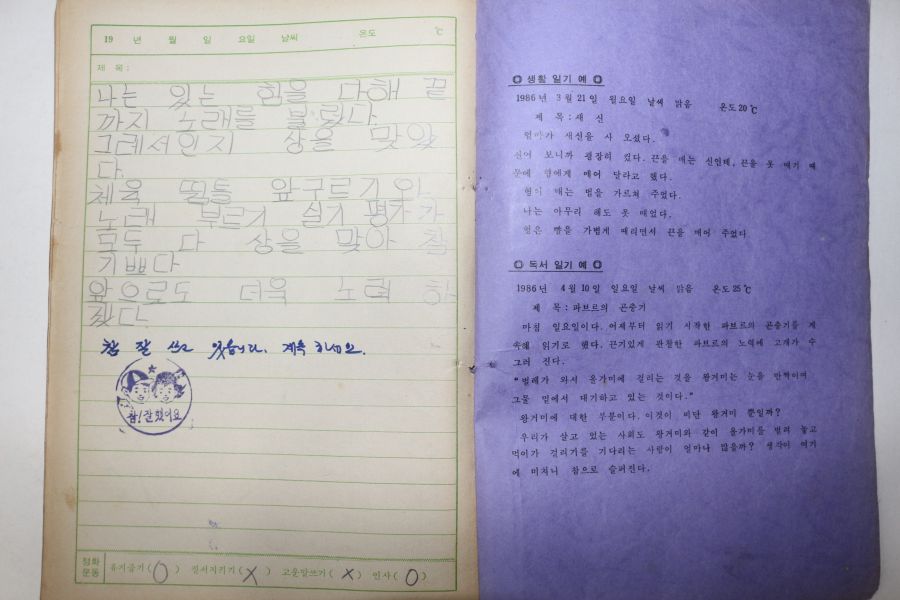 19 년 월 일 요일 날씨 온도 ℃
제 목 :
나는 있는 힘을 다해 끝
까지 노래를 불렀다.
그래서인지 상을 맞았
다.
체육 뜀틀 앞구르기와
노래 부르기 실기 평가가
모두 다 상을 맞아 참
기쁘다
앞으로도 더욱 노력 하
겠다.
참 잘 쓰고 있습니다. 계속 하세요.
참! 잘했어요
정화
운동
휴지줍기( O ) 질서지키기( X ) 고운말쓰기( X ) 인사( O )
◎ 생활 일기 예 ◎
1986년 3월 21일 월요일 날씨 맑음 온도 20℃
제 목 : 새 신
엄마가 새신을 사 오셨다.
신어 보니까 굉장히 컸다. 끈을 매는 신인데, 끈을 못 매기 때
문에 형에게 매어 달라고 했다.
형이 매는 법을 가르쳐 주었다.
나는 아무리 해도 못 매었다.
형은 빰을 가볍게 때리면서 끈을 매어 주었다
◎ 독서 일기 예 ◎
1986년 4월 10일 일요일 날씨 맑음 온도 25℃
제 목 : 파브르의 곤충기
마침 일요일이다. 어제부터 읽기 시작한 파브르의 곤충기를 계
속해 읽기로 했다. 끈기있게 관찰한 파브르의 노력에 고개가 수
그러 진다.
"벌레가 와서 올가미에 걸리는 것을 왕거미는 눈을 반짝이며
그물 밑에서 대기하고 있는 것이다."
왕거미에 대한 부분이다. 이것이 비단 왕거미 뿐일까?
우리가 살고 있는 사회도 왕거미와 같이 올가미를 벌려 놓고
먹이가 걸리기를 기다리는 사람이 얼마나 많을까? 생각이 여기
에 미치니 참으로 슬퍼진다.